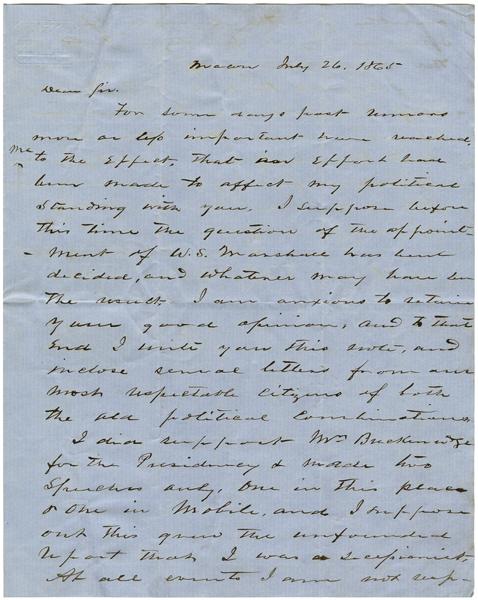 Macon July 26. 1865
Dear Sir.
For some days past rumors
more or less important have reached
me
to the Effect, that an Effort have
been made to affect my political
standing with you. I suppose before
this time the question of the appoint-
-ment of W. S. Marshall has been
decided, and whatever may have been
the result I am anxious to retain
your good opinion, and to that
End I write you this note, and
inclose several letters from our
most respectable Citizens of both
the old political Combinations
I did support Mr Buckinridge
for the Presidency & made two
Speeches only, One in this place
& One in Mobile, and I suppose
out this grew the unfounded
report that I was a secessionist.
At all events I am not resp-